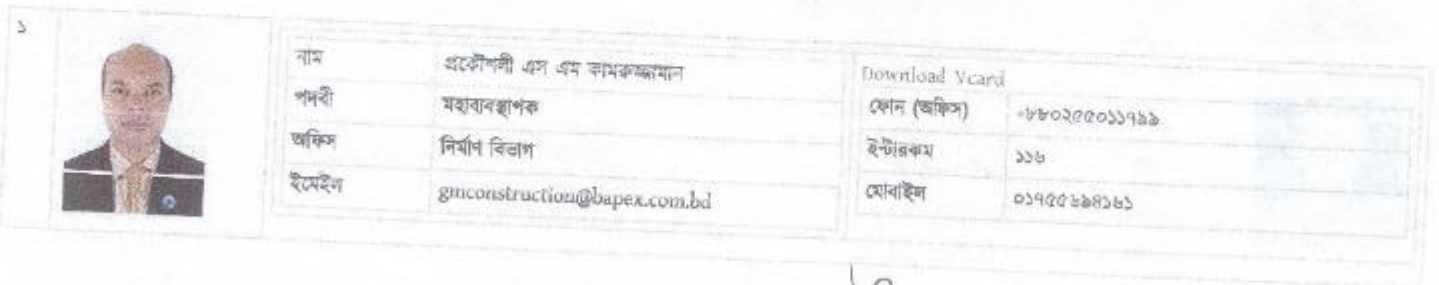 ১
নাম প্রকৌশলী এস এম কামরুজ্জামান
পদবী মহাব্যবস্থাপক
অফিস নির্মাণ বিভাগ
ইমেইল gmconstruction@bapex.com.bd
Download Vcard
ফোন (অফিস) +৮৮০২৫৫০১১৭৯৯
ইন্টারকম ১১৬
মোবাইল